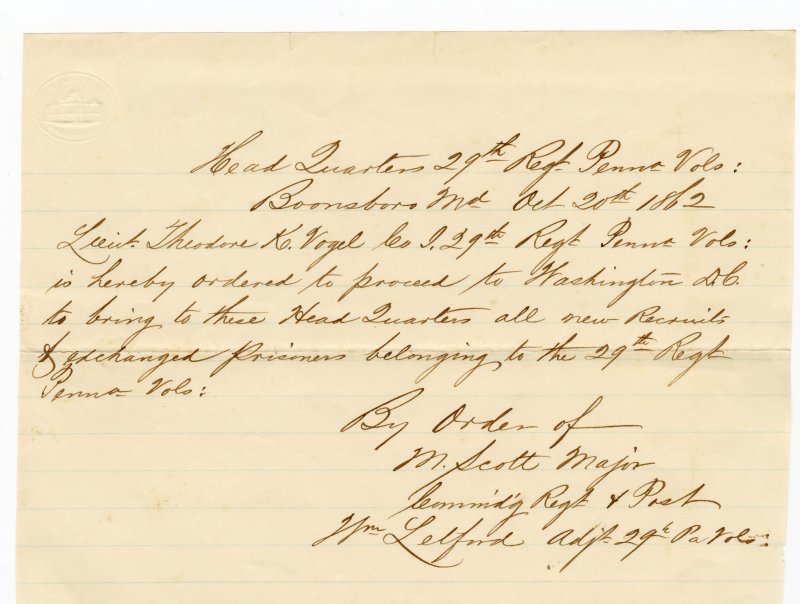 Head Quarters 29th Regt Penna Vols:
Boonsboro Md Oct 20th 1862
Lieut. Theodore K. Vogel Co I. 29th Regt Penna Vols:
is hereby ordered to proceed to Washington D.C.
to bring to these Head Quarters all new Recruits
& exchanged prisoners belonging to the 29th Regt
Penna Vols:
By Order of
M. Scott Major
Commd'g Regt & Post
Wm Letford Adjt. 29th Pa Vols: